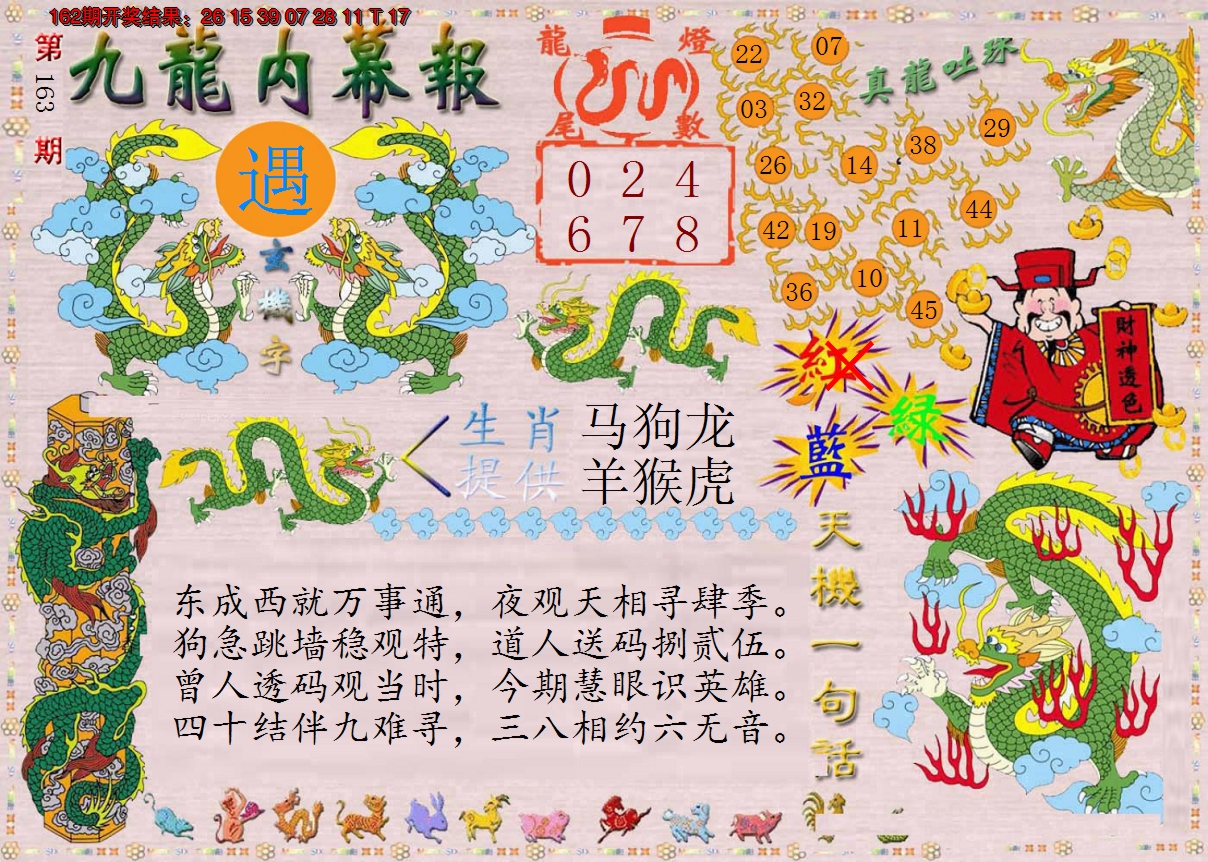 162期开奖结果：26 15 39 07 28 11 T 17
第163期
九龍内幕報
遇
玄機字
龍燈
尾數
0 2 4
6 7 8
真龍吐珠
22 07
03 32
29
38
26 14
44
42 19 11
10
36
45
財神透色
紅
綠
藍
生肖 马狗龙
提供 羊猴虎
东成西就万事通，夜观天相寻肆季。
狗急跳墙稳观特，道人送码捌贰伍。
曾人透码观当时，今期慧眼识英雄。
四十结伴九难寻，三八相约六无音。
天機一句話